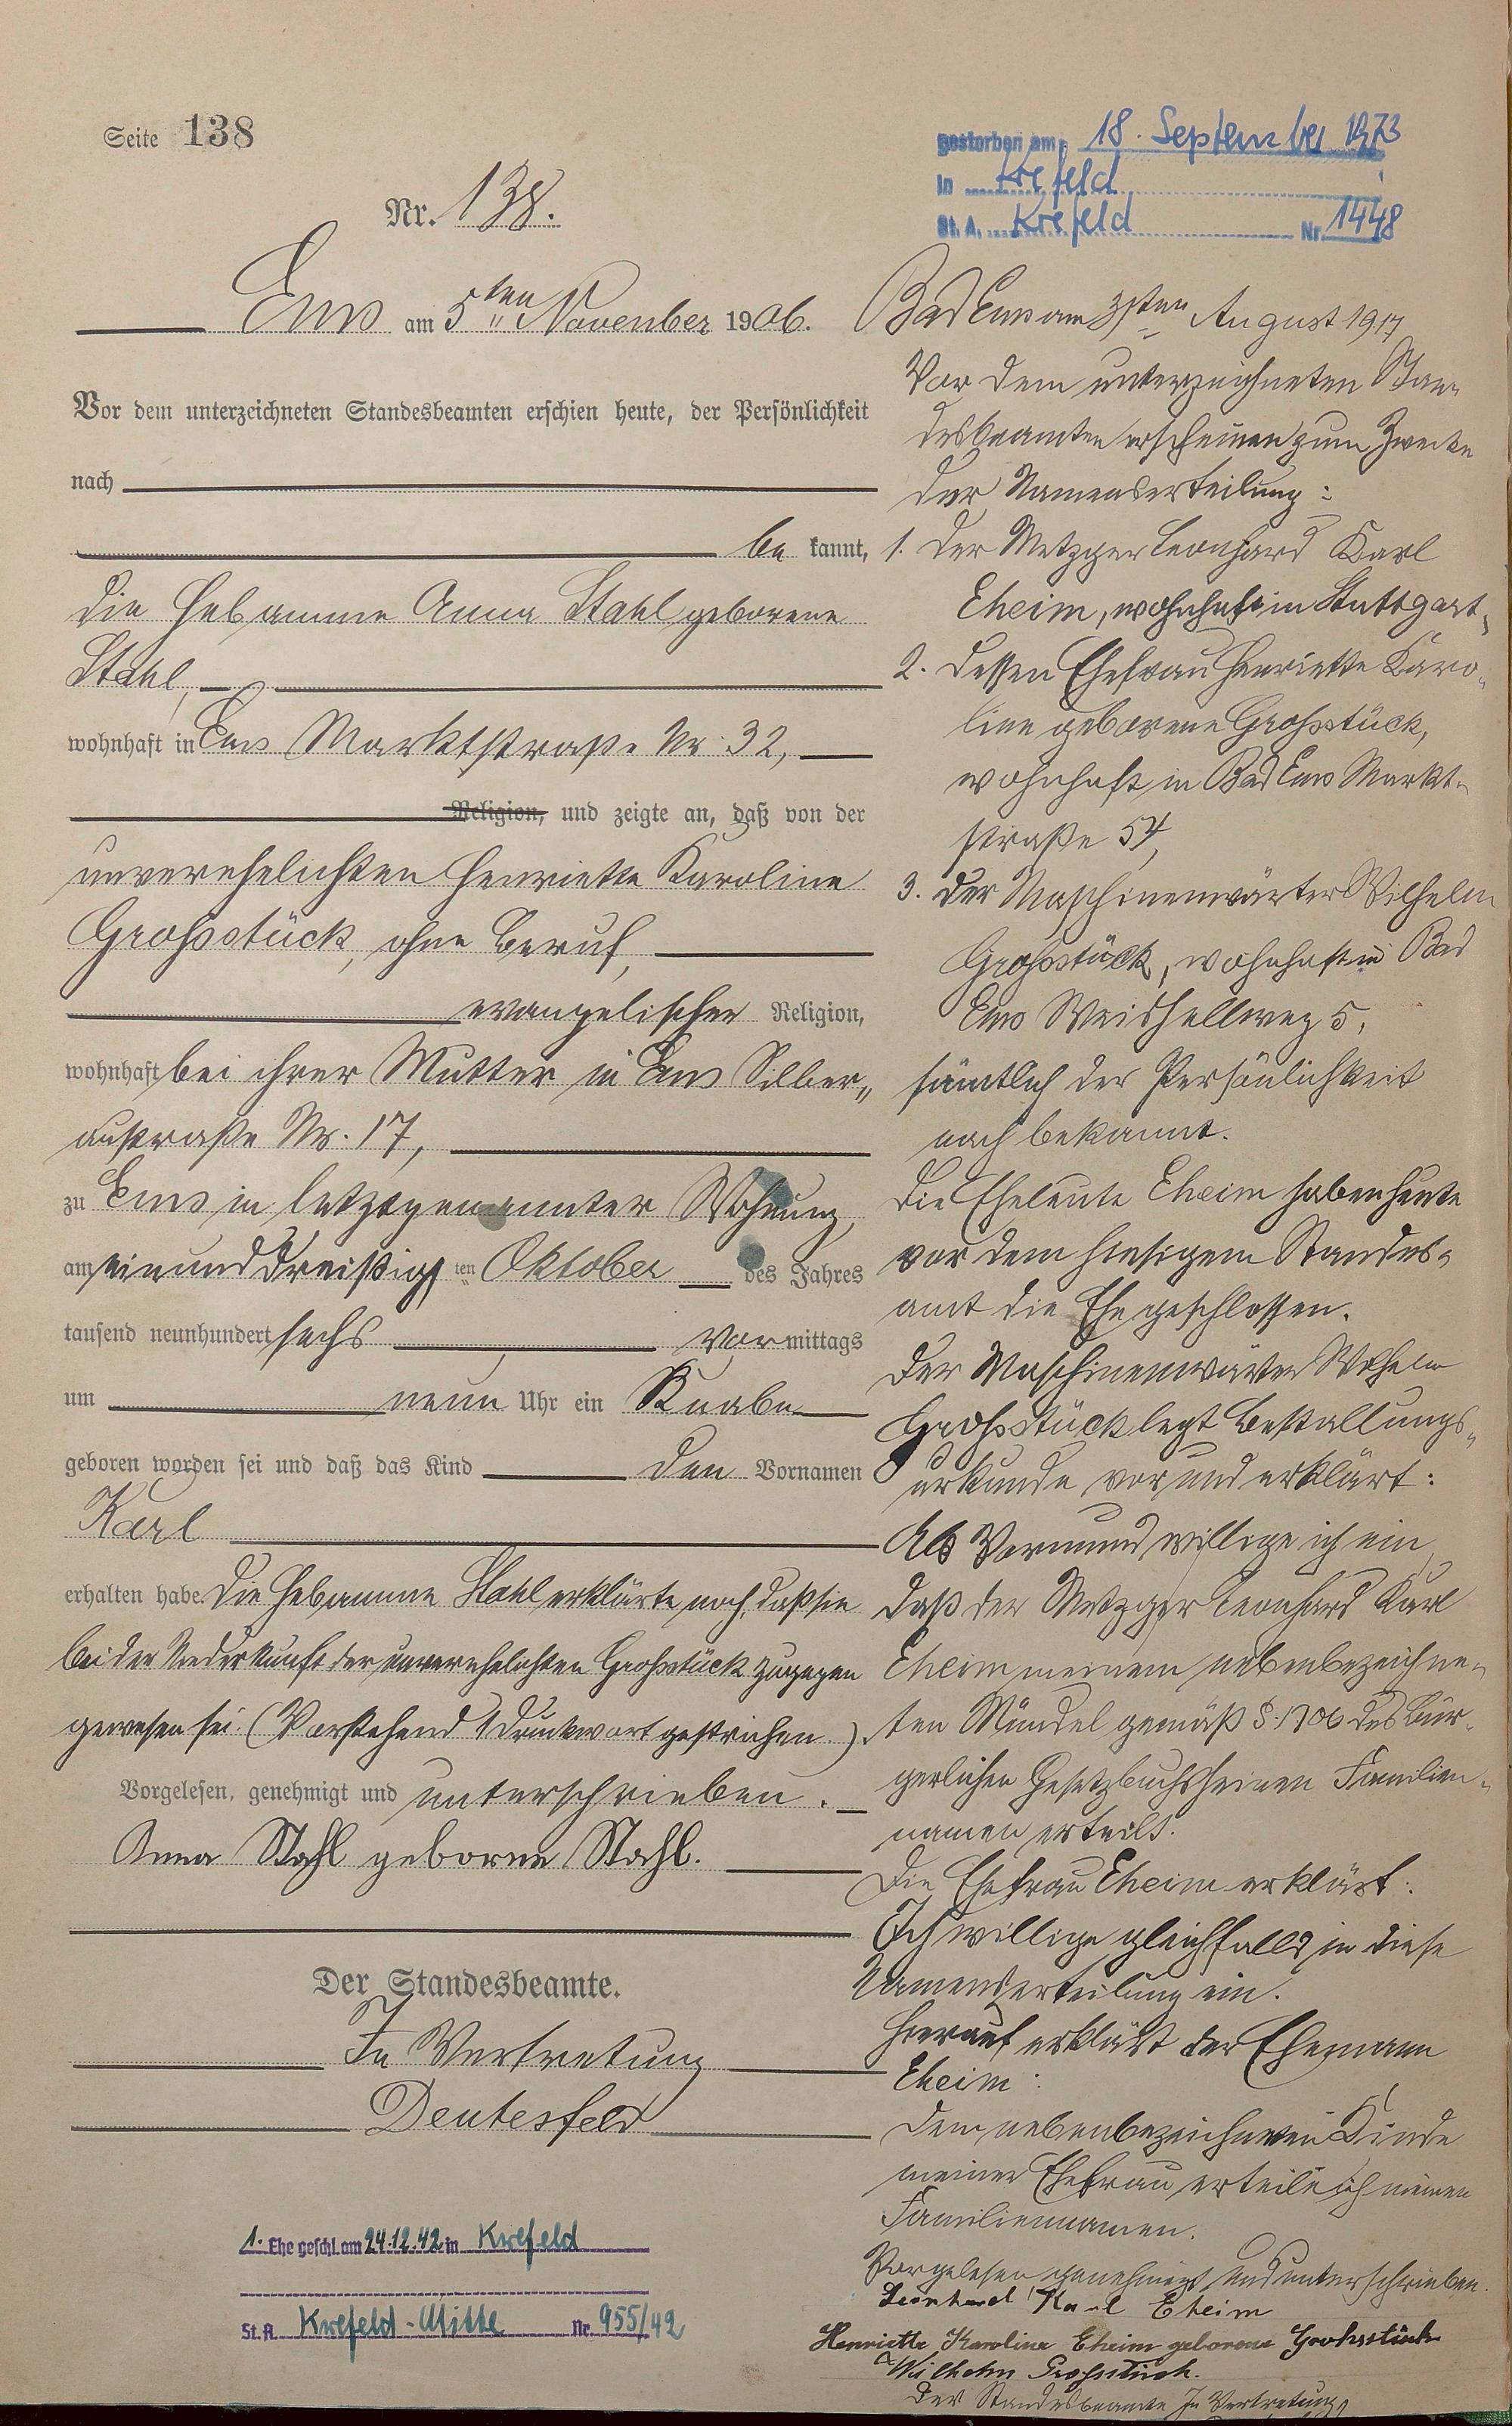 Seite 138
Nr. 138.
Ems am 5ten November 1906.
Vor dem unterzeichneten Standesbeamten erschien heute, der Persönlichkeit
nach
be kannt,
die Hebamme Anna Stahl geborene
Stahl,
wohnhaft in Ems Marktstraße Nr. 32,
Religion, und zeigte an, daß von der
unverehelichten Henriette Karoline
Großstück, ohne Beruf,
evangelischer Religion,
wohnhaft bei ihrer Mutter in Ems Silber„
austraße Nr. 17,
zu Ems in letztgenannter Wohnung,
am einunddreißigsten Oktober des Jahres
tausend neunhundert sechs vormittags
um neun Uhr ein Knabe
geboren worden sei und daß das Kind den Vornamen
Karl
erhalten habe. Die Hebamme Stahl erklärte noch, daß sie
bei der Niederkunft der unverehelichten Großstück zugegen
gewesen sei. (Vorstehend 1 Druckwort gestrichen.)
Vorgelesen, genehmigt und unterschrieben.
Anna Stahl geborne Stahl.
Der Standesbeamte.
In Vertretung
Deutesfeld
1. Ehe geschl. am 24.12.42 in Krefeld
St. A. Krefeld-Mitte Nr. 955/42
gestorben am 18. September 1973
in Krefeld
St. A. Krefeld Nr. 1448
Bad Ems am 31sten August 1917
Vor dem unterzeichneten Stan„
desbeamten erscheinen zum Zwecke
der Namenserteilung:
1. der Metzger Leonhard Karl
Eheim, wohnhaft in Stuttgart,
2. dessen Ehefrau Henriette Karo„
line geborene Großstück,
wohnhaft in Bad Ems Markt„
straße 54,
3. der Maschinenwärter Wilhelm
Großstück, wohnhaft in Bad
Ems Weishellweg 5,
sämtlich der Persönlichkeit
nach bekannt.
Die Eheleute Eheim haben heute
vor dem hiesigem Standes„
amt die Ehe geschlossen.
Der Maschinenwärter Wilhelm
Großstück legt Bestallungs„
urkunde vor und erklärt:
Als Vormund willige ich ein,
daß der Metzger Leonhard Karl
Eheim meinem nebenbezeichne„
ten Mündel gemäß §. 1706 des Bür„
gerlichen Gesetzbuchs seinen Familien„
namen erteilt.
Die Ehefrau Eheim erklärt:
Ich willige gleichfalls in diese
Namenserteilung ein.
Hierauf erklärt der Ehemann
Eheim:
Dem nebenbezeichneten Kinde
meiner Ehefrau erteile ich meinen
Familiennamen.
Vorgelesen genehmigt und unterschrieben.
Leonhard Karl Eheim
Henriette Karoline Eheim geborene Grohsstück
Wilhelm Großstück.
Der Standesbeamte In Vertretung